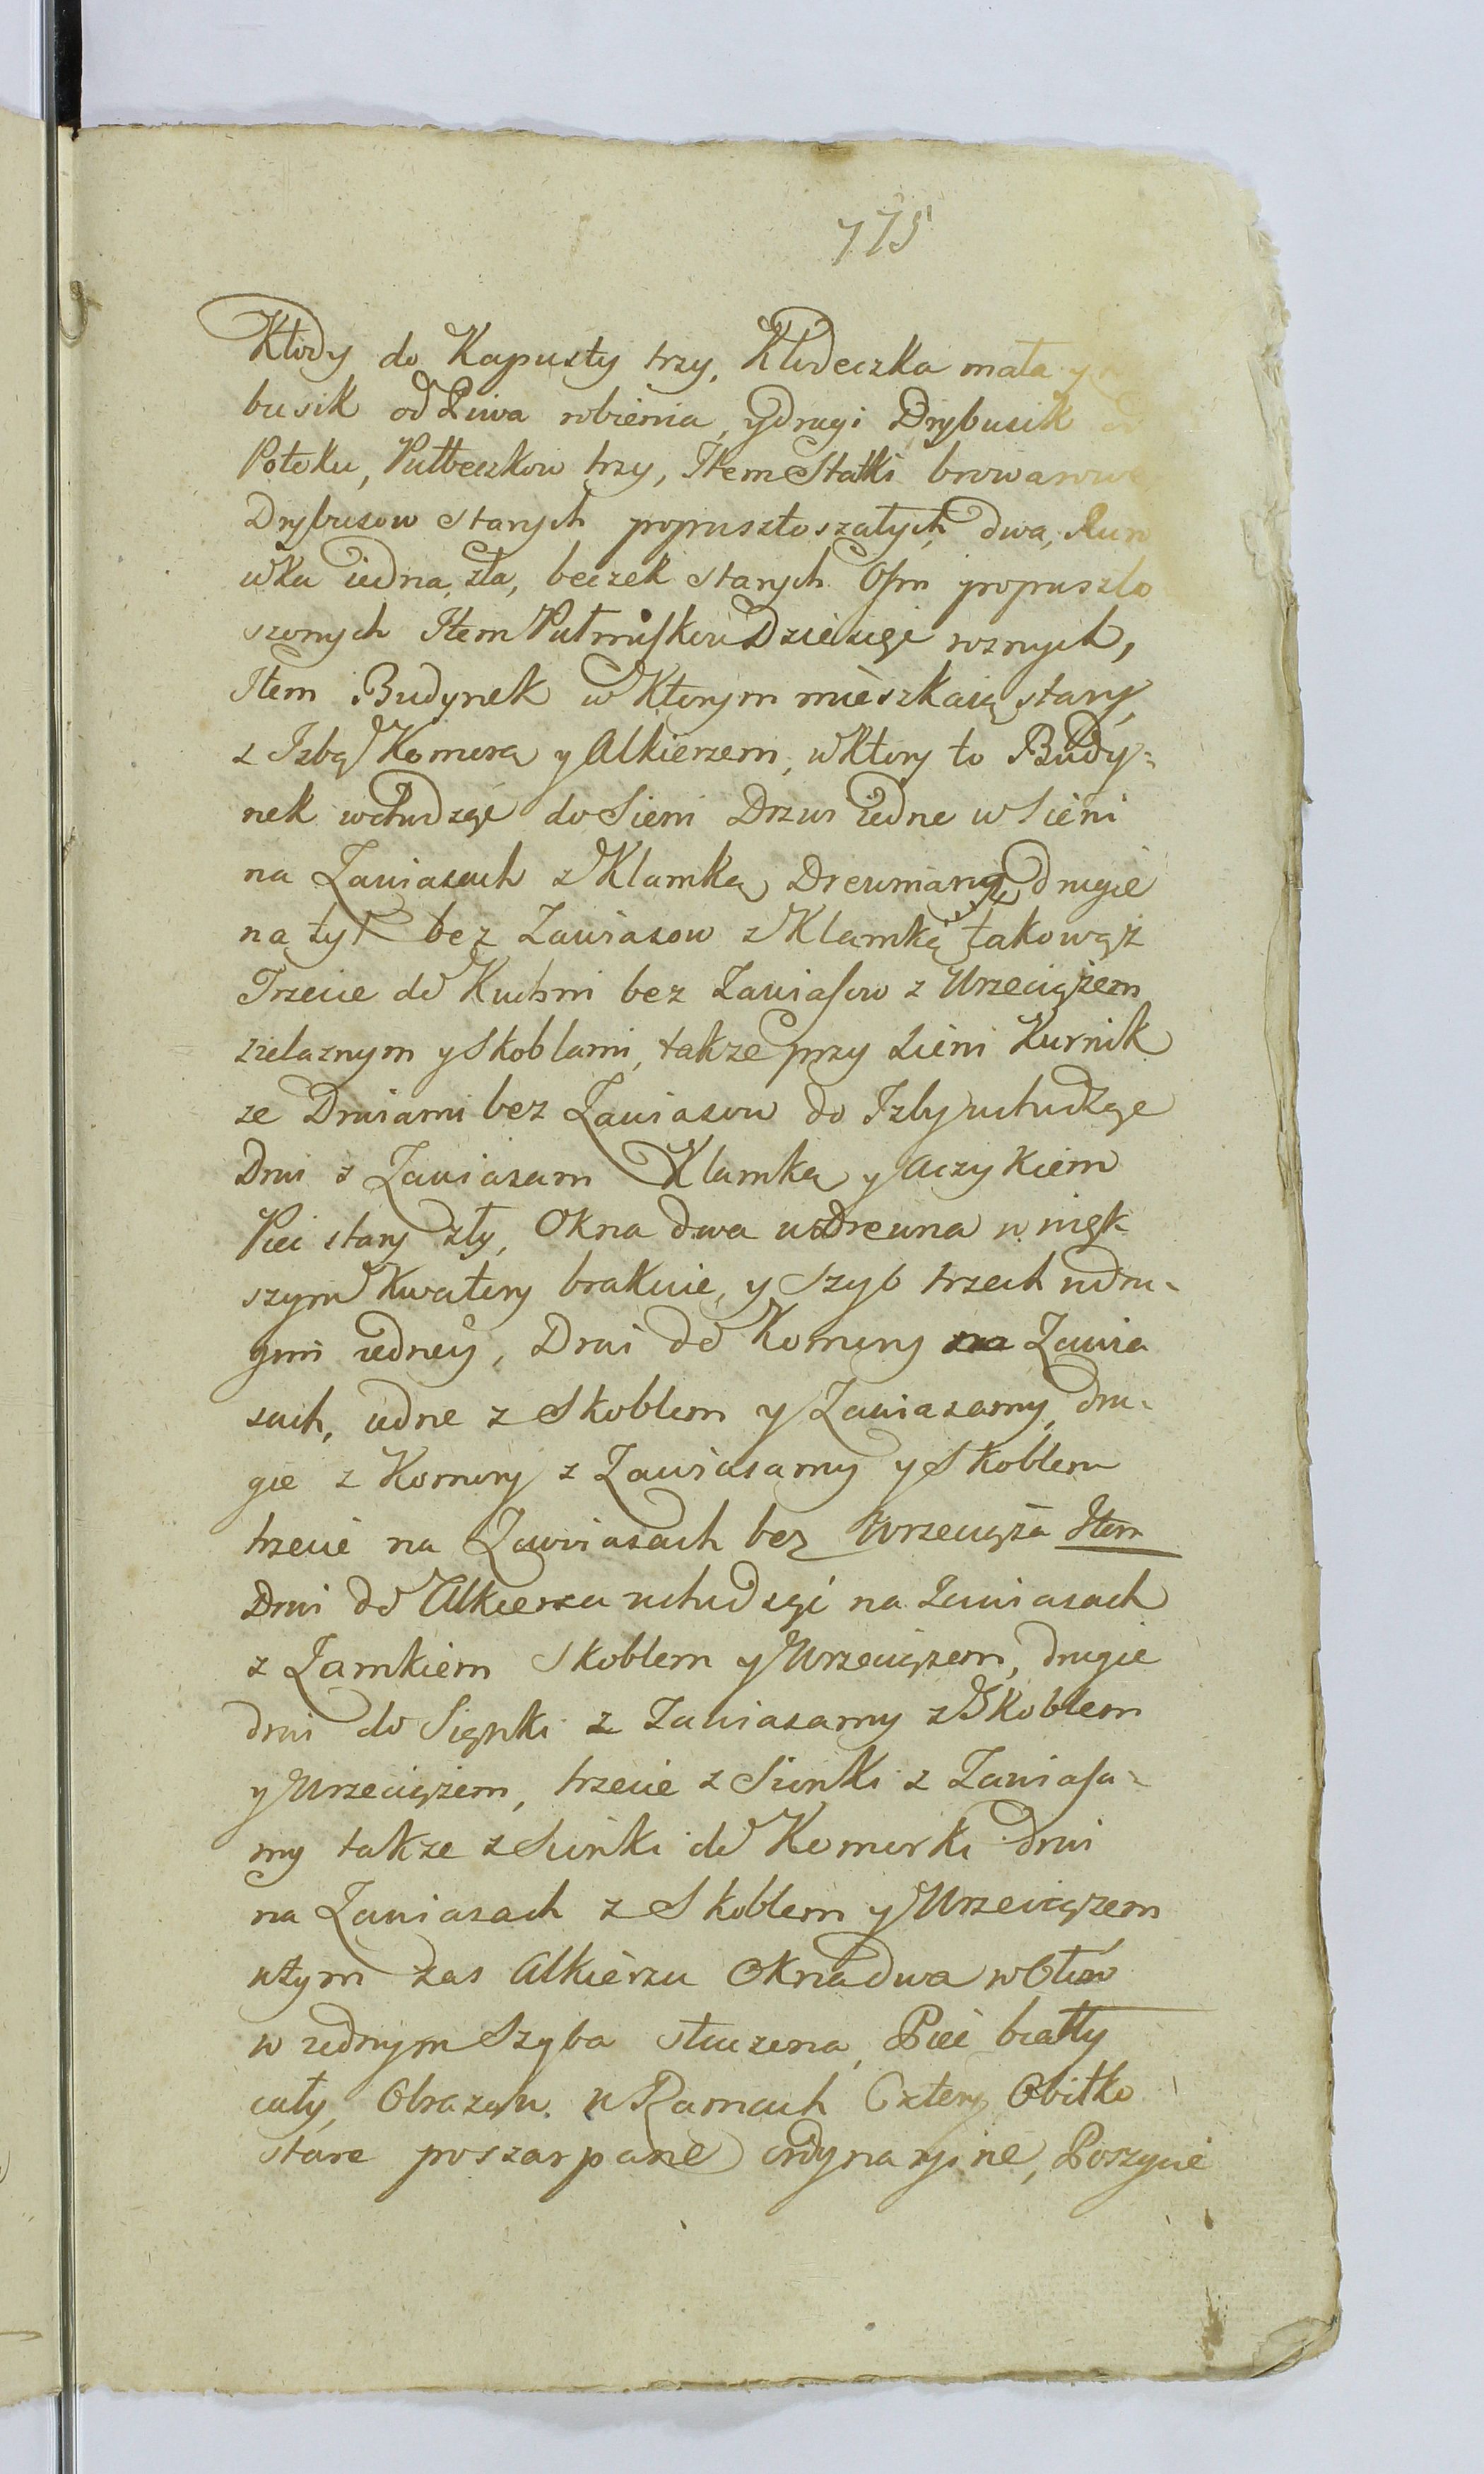 775
Kłody do Kapusty trzy, Kłodeczka mała y
busik od Piwa robienia, y drugi Drybusik od
Potoku, Pułbeczkow trzy, Item Statki browarowe,
Drybusow starych popruszłoszałych dwa, Rur
wka iedna, zła, beczek starych Osm popruszło
szonych Item Pułmiskow Dziesięć roznych,
Item Budynek w Ktorym mieszkaią stary,
z Izbą Komorą y Alkierzem, w Ktory to Budy-
nek wchodząc do Sieni Drzwi iedne w Sieni
na Zawiasach z Klamką Drewnianą, drugie
na tył bez Zawiasow z Klamką takowąż
Trzecie do Kuchni bez Zawiasow z Wrzeciążem
zielaznym y Skoblami, takze przy Sieni Kurnik
ze Drwiami bez Zawiasow do Izby wchodząc
Drwi z Zawiasam Klamką y Aczykiem
Piec stary zły, Okna dwa w Drewna w więk
szym Kwatery brakuie, y Szyb trzech w dru-
gim iedney, Drwi do Komory na Zawia
sach, iedne z Skoblem y Zawiasamy, dru-
gie z Komory z Zawiasamy y Skoblem
trzecie na Zawiasach bez Wrzeciąża Item
Drwi do Alkierza wchodząc na Zawiasach
z Zamkiem Skoblem y Wrzeciązem, drugie
drwi do Sięnki z Zawiasamy z Skoblem
y Wrzeciążem, trzecie z Sionki z Zawiasa-
my takze z Sionki do Komorki drwi
na Zawiasach z Skoblem y Wrzeciązem
w tym zas Alkierzu Okna dwa w Ołow
w iednym Szyba stłuczona, Piec biały
cały, Obrazow w Ramach Cztery Obitko
stare poszarpane ordynaryine, Poszycie